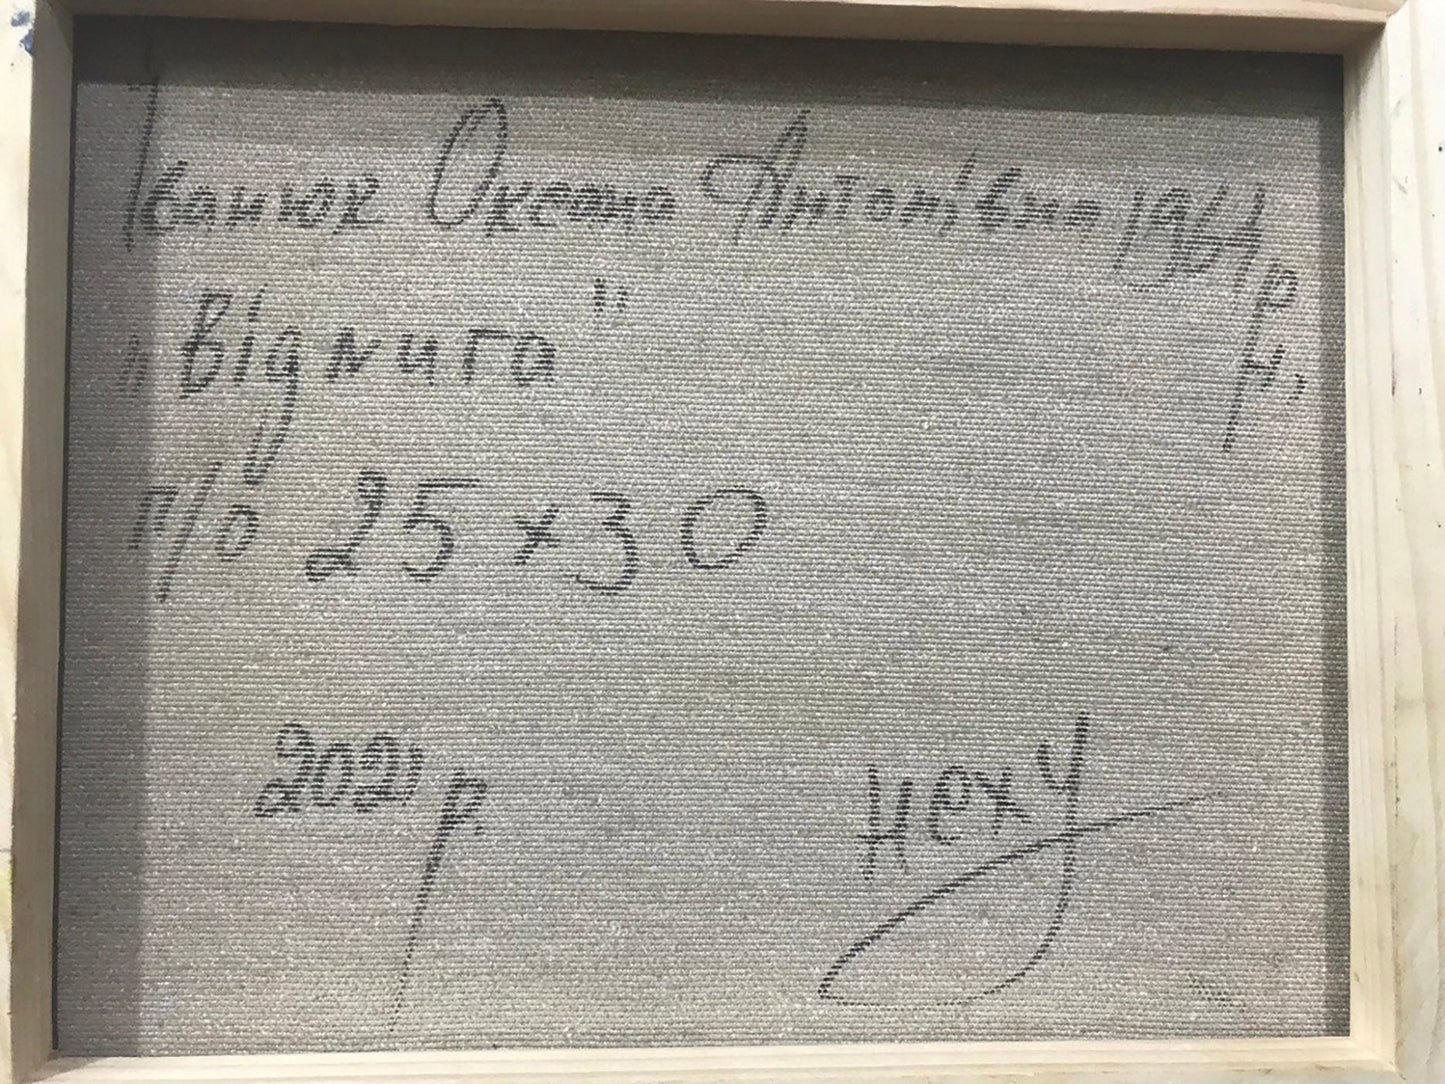 Іванюк Оксана Антонівна 1961 р. н.
„Відлига"
п/о 25 х 30
2021 р.